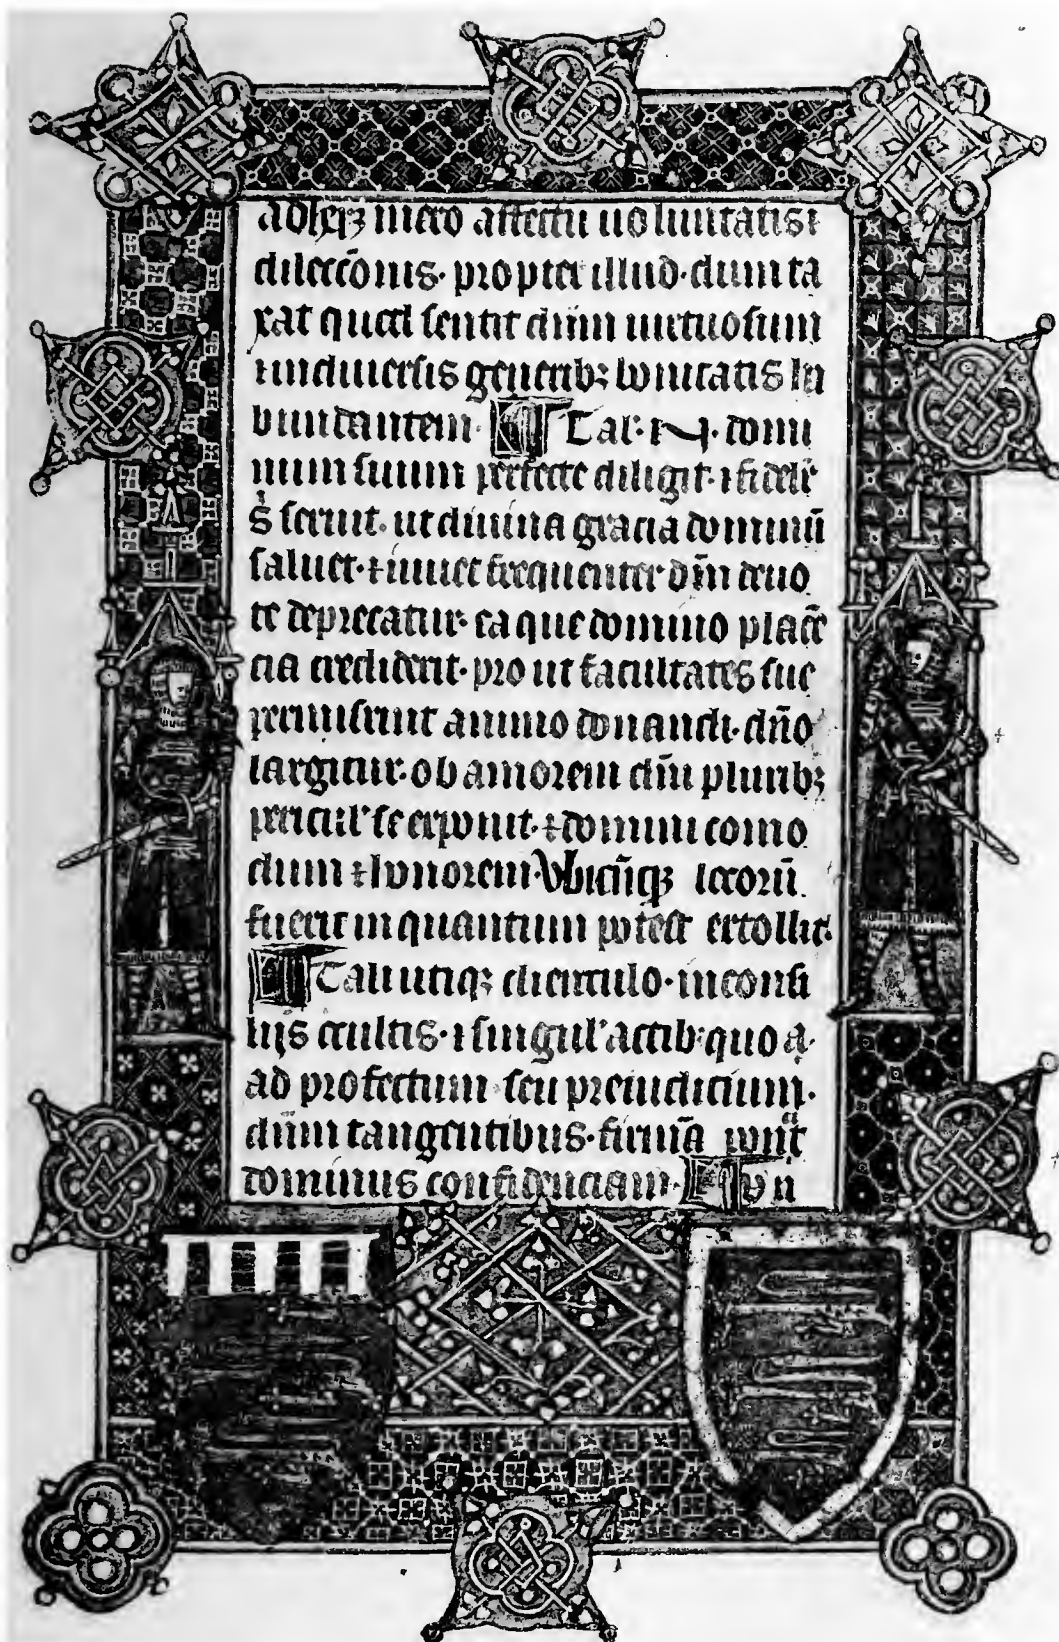 adheret mero affectu uoluntatis ⁊
dilecc̄onis· propter illud· dum ta
xat quod sentit dñm uirtuosum
⁊ in diuersis generibꝫ bonitatis ha
bundantem· Talis domi
num suum perfecte diligit· ⁊ fideli
s seruit· ut diuina gracia dominū
saluet· ⁊ iuuet frequenter dm̄ deuo
te deprecatur· ea que domino placē
cia crediderit· pro ut facultates sue
permiserint animo donandi· dño
largitur· ob amorem dñi pluribꝫ
pericul' se exponit· ⁊ domini como
dum ⁊ honorem Vbicūqꝫ locorū
fuerit in quantum potest extollit·
Tali utiqꝫ dicipulo· in consi
lijs ocultis· ⁊ singul' actibꝫ quo a·
ad profectum seu preiudicium·
dñm tangentibus· firmā ponat
dominus confidenciam·